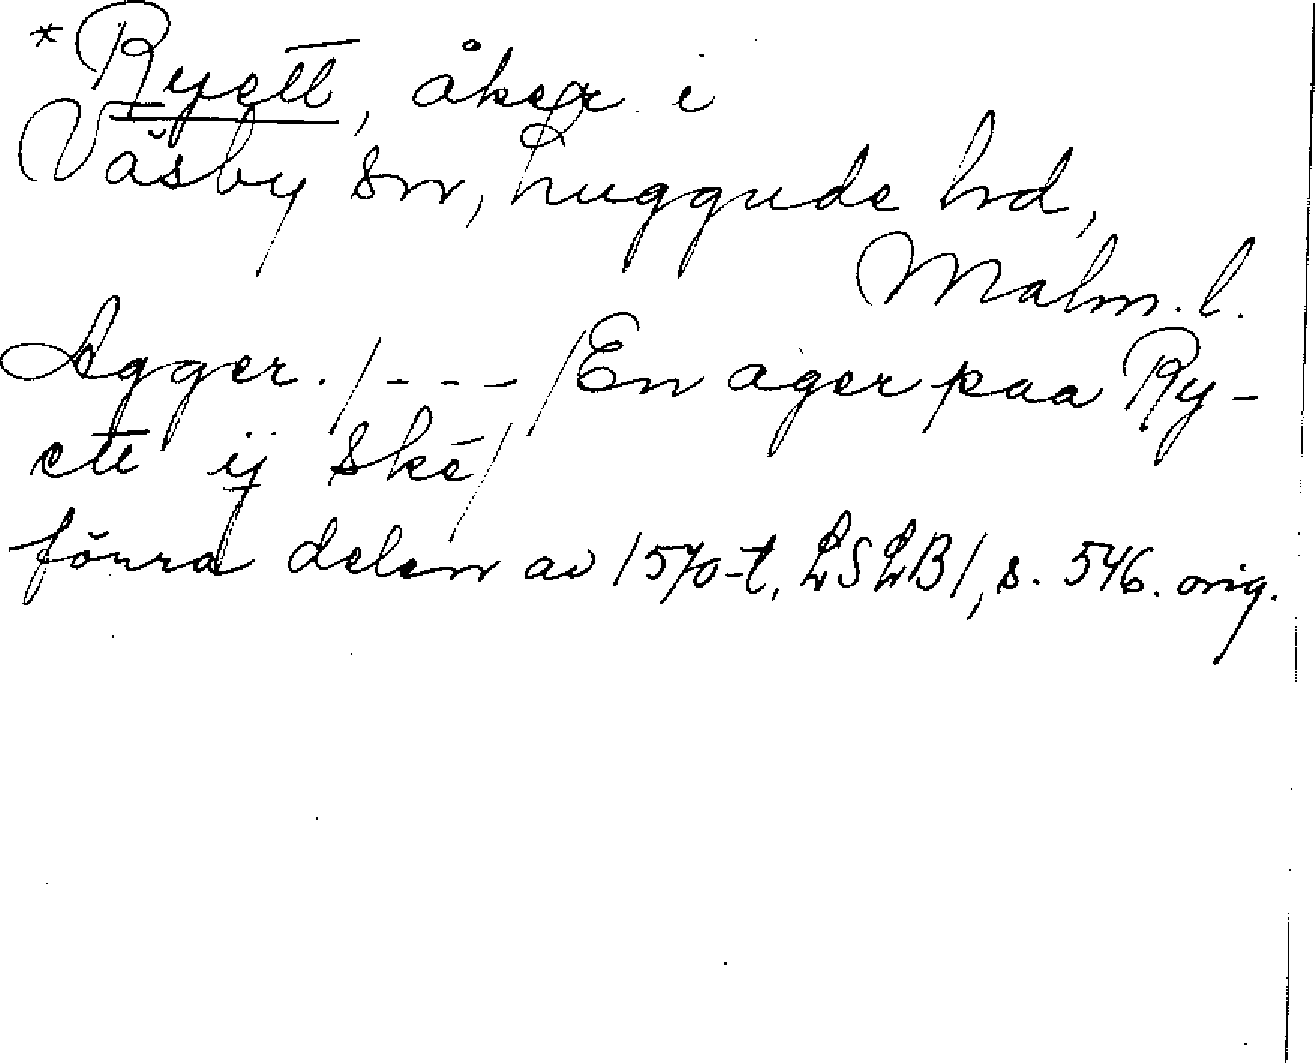 *Ryett, åker i
Väsby sn, Luggude hd,
Malm. l.
Agger. /- - - /En ager paa Ry-
ett ij ske/
förra delen av 1570-t, LSLB1, s. 546. orig.